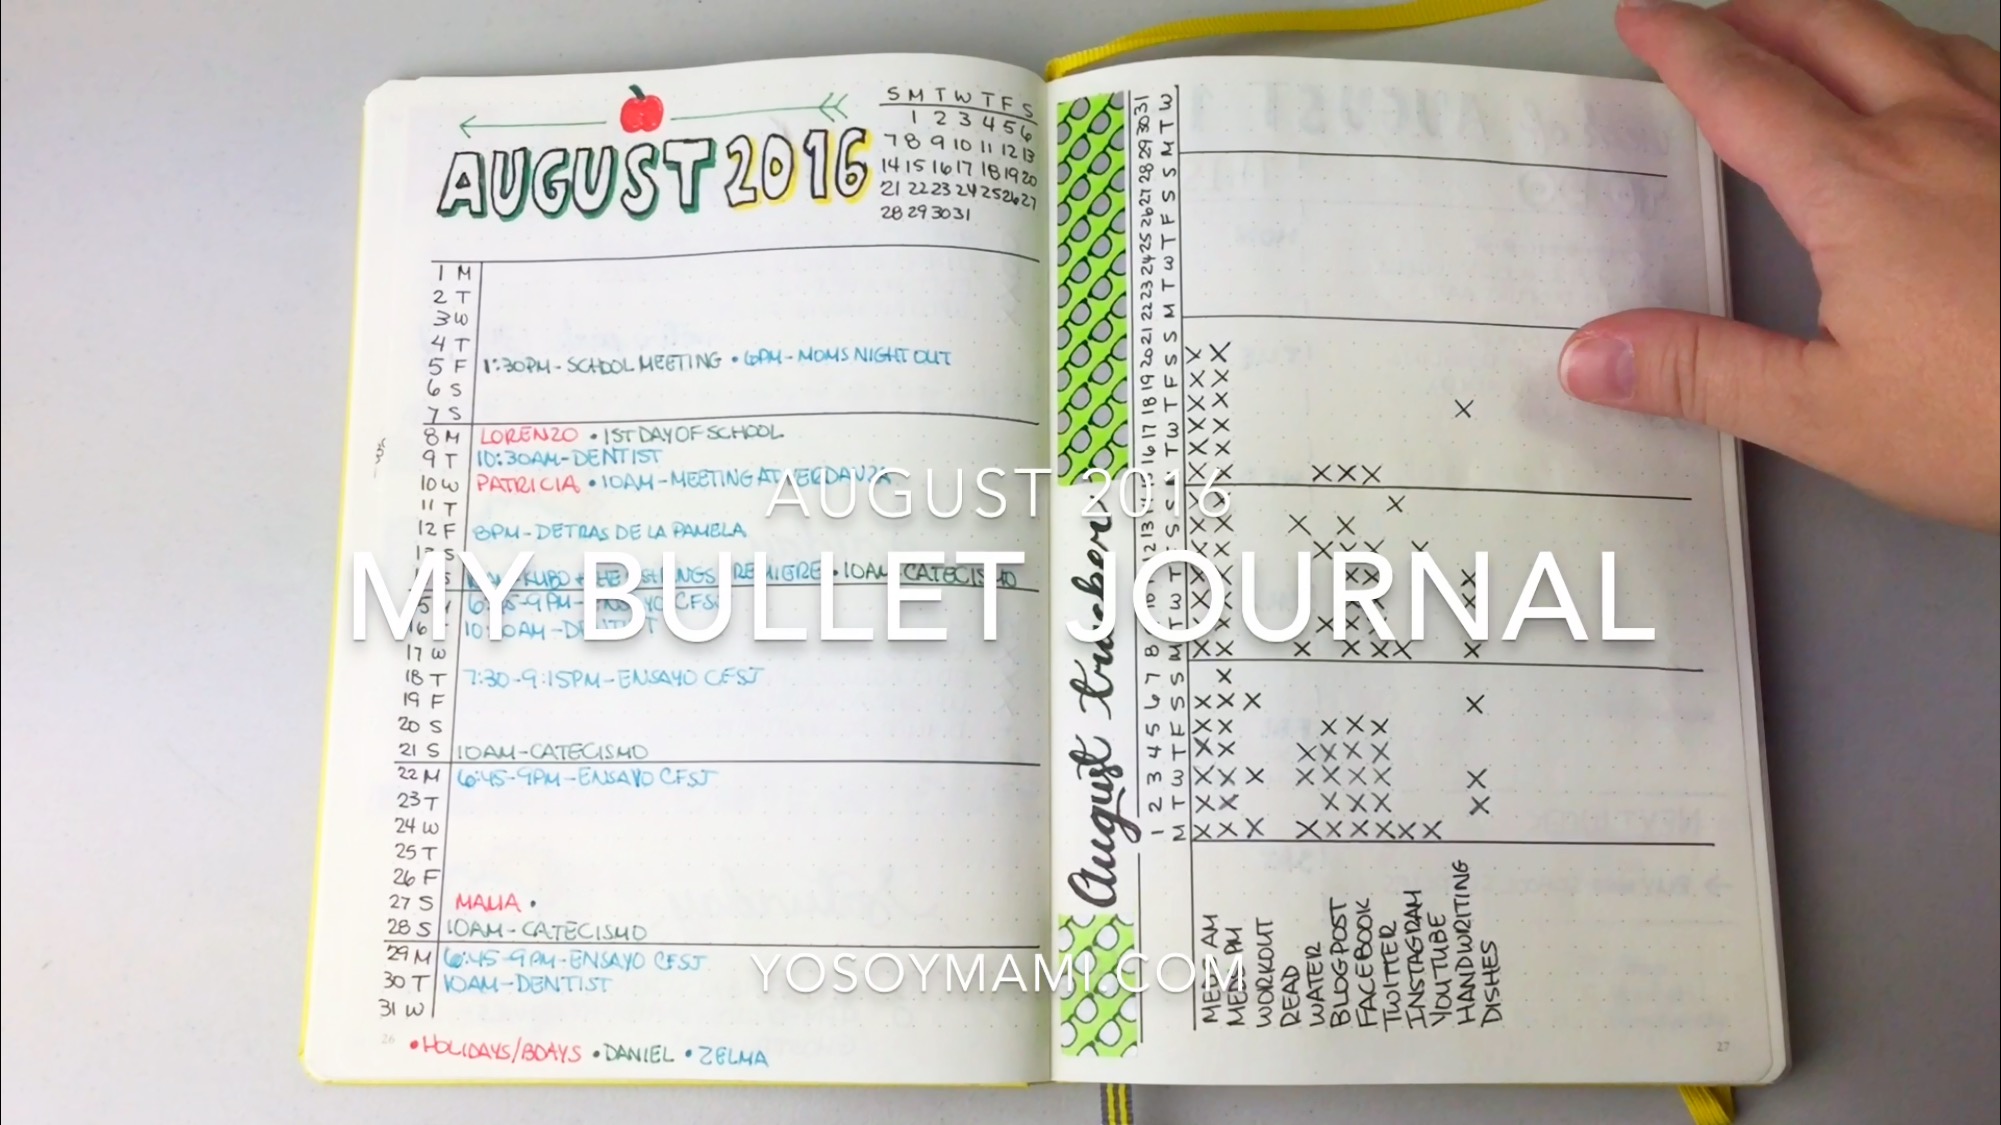 AUGUST 2016
S M T W T F S
1 2 3 4 5 6
7 8 9 10 11 12 13
14 15 16 17 18 19 20
21 22 23 24 25 26 27
28 29 30 31
1 M
2 T
3 W
4 T
5 F 1:30PM - SCHOOL MEETING • 6PM - MOMS NIGHT OUT
6 S
7 S
8 M LORENZO • 1ST DAY OF SCHOOL
9 T 10:30AM - DENTIST
10 W PATRICIA • 10AM - MEETING AT
11 T
12 F 8PM - DETRAS DE LA PAMELA
S
KUBO PREMIERE • 10AM CATECISMO
6:45-9PM - ENSAYO CFSJ
16 T 10:30AM - DENTIST
17 W
18 T 7:30-9:15PM - ENSAYO CFSJ
19 F
20 S
21 S 10AM - CATECISMO
22 M 6:45-9PM - ENSAYO CFSJ
23 T
24 W
25 T
26 F
27 S MALIA •
28 S 10AM - CATECISMO
29 M 6:45-9PM - ENSAYO CFSJ
30 T 10AM - DENTIST
31 W
26 • HOLIDAYS/BDAYS • DANIEL • ZELMA
August trackers
1 2 3 4 5 6 7 8 10 12 13 16 17 18 19 20 21 22 23 24 25 26 27 28 29 30 31
M T W T F S S M T W T F S S T W T F S S M T W T F S S M T W
MEDS AM
MEDS PM
WORKOUT
READ
WATER
BLOG POST
FACEBOOK
TWITTER
INSTAGRAM
YOUTUBE
HANDWRITING
DISHES
27
AUGUST 2016
MY BULLET JOURNAL
YOSOYMAMI.COM